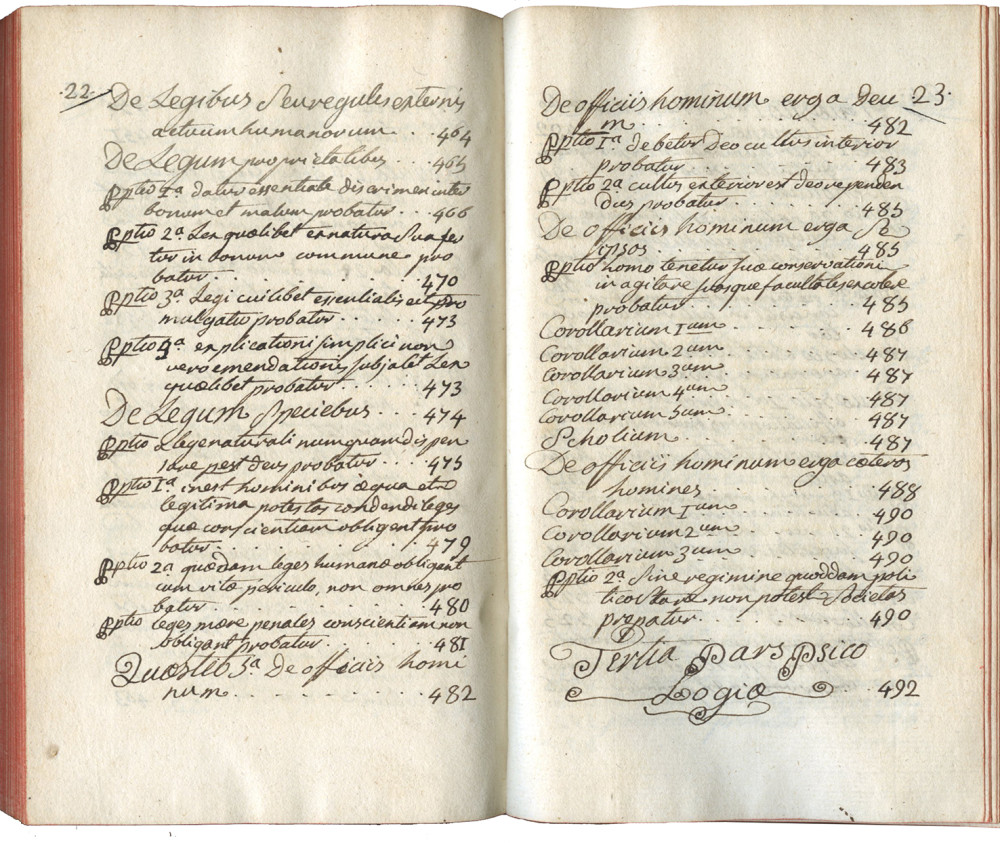 22.
De Legibus seu regulis externis
actuum humanorum . . 464
De Legum proprietatibus . . . 465
Pptio 1ª. datur essentiale discrimen inter
bonum et malum probatur . . . 466
Pptio 2ª. Lex quælibet ex natura sua fer
tur in bonum commune pro
batur . . . 470
Pptio 3ª. Legi cuilibet essentialis est pro
mulgatio probatur . . . 473
Pptio 4ª explicationi simplici non
vero emendationi subjacet Lex
quælibet probatur . . . 473
De Legum Speciebus . . . 474
Pptio Lege naturali numquam dispen
sare pest deus probatur . . . 475
Pptio 1ª. inest hominibus æqua et
legitima potestas condendi leges
quæ conscientiam obligent pro
batur . . . 479
Pptio 2a quædam leges humanæ obligant
cum vitæ periculo, non omnes pro
batur . . . 480
Pptio leges mære penales conscientiam non
obligant probatur . . . 481
Quæstio 5ª. De officiis homi
num . . . 482
23.
De officiis hominum erga deu
m . . . 482
Pptio 1ª. debetur Deo cultus interior
probatur . . . 483
Pptio 2ª cultus exterior est deo rependen
dus probatur . . . 485
De officiis hominum erga se
ipsos . . . 485
Pptio homo tenetur suæ conservationi
in agitare suasque facultates excolere
probatur . . . 485
Corollarium 1um . . . 486
Corollarium 2um . . . 487
Corollarium 3um . . . 487
Corollarium 4um . . . 487
Corollarium 5um . . . 487
Scholium . . . 487
De officiis hominum erga cæteros
homines . . . 488
Corollarium 1um . . . 490
Corollarium 2um . . . 490
Corollarium 3um . . . 490
Pptio 2ª. Sine regimine quoddam poli
tico stare non potest Societas
probatur . . . 490
Tertia Pars Psico
Logiæ . . 492